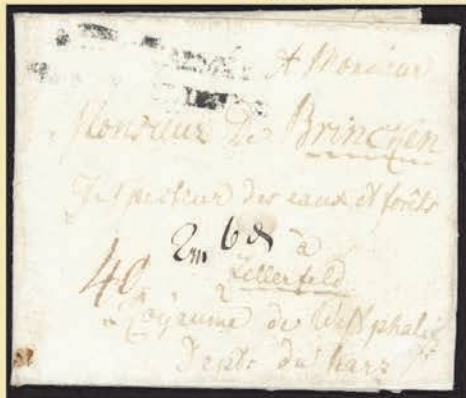 A Monsieur
Monsieur De Brincken
Inspecteur des eaux et forêts
à
2 m 68
Zellerfeld
40
Royaume de Westphalie
Depte du harz